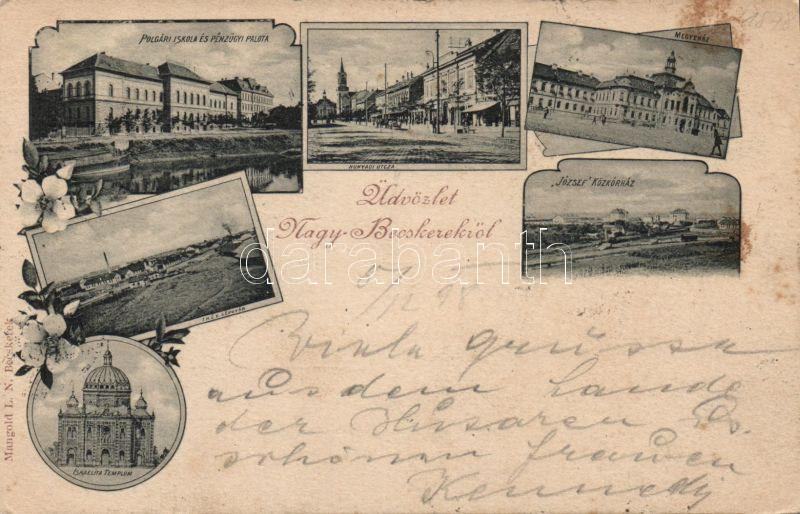 1898
POLGÁRI ISKOLA ÉS PÉNZÜGYI PALOTA
HUNYADI UTCZA
MEGYEHÁZ
"JÓZSEF" KÖZKÓRHÁZ
Üdvözlet
Nagy-Becskerekről
darabanth
5/12 98
Viele grüsse
aus dem Lande
der Husaren
schönen frauen
Kennedy
ISRAELITA TEMPLOM
Mangold L. N. Becskerek